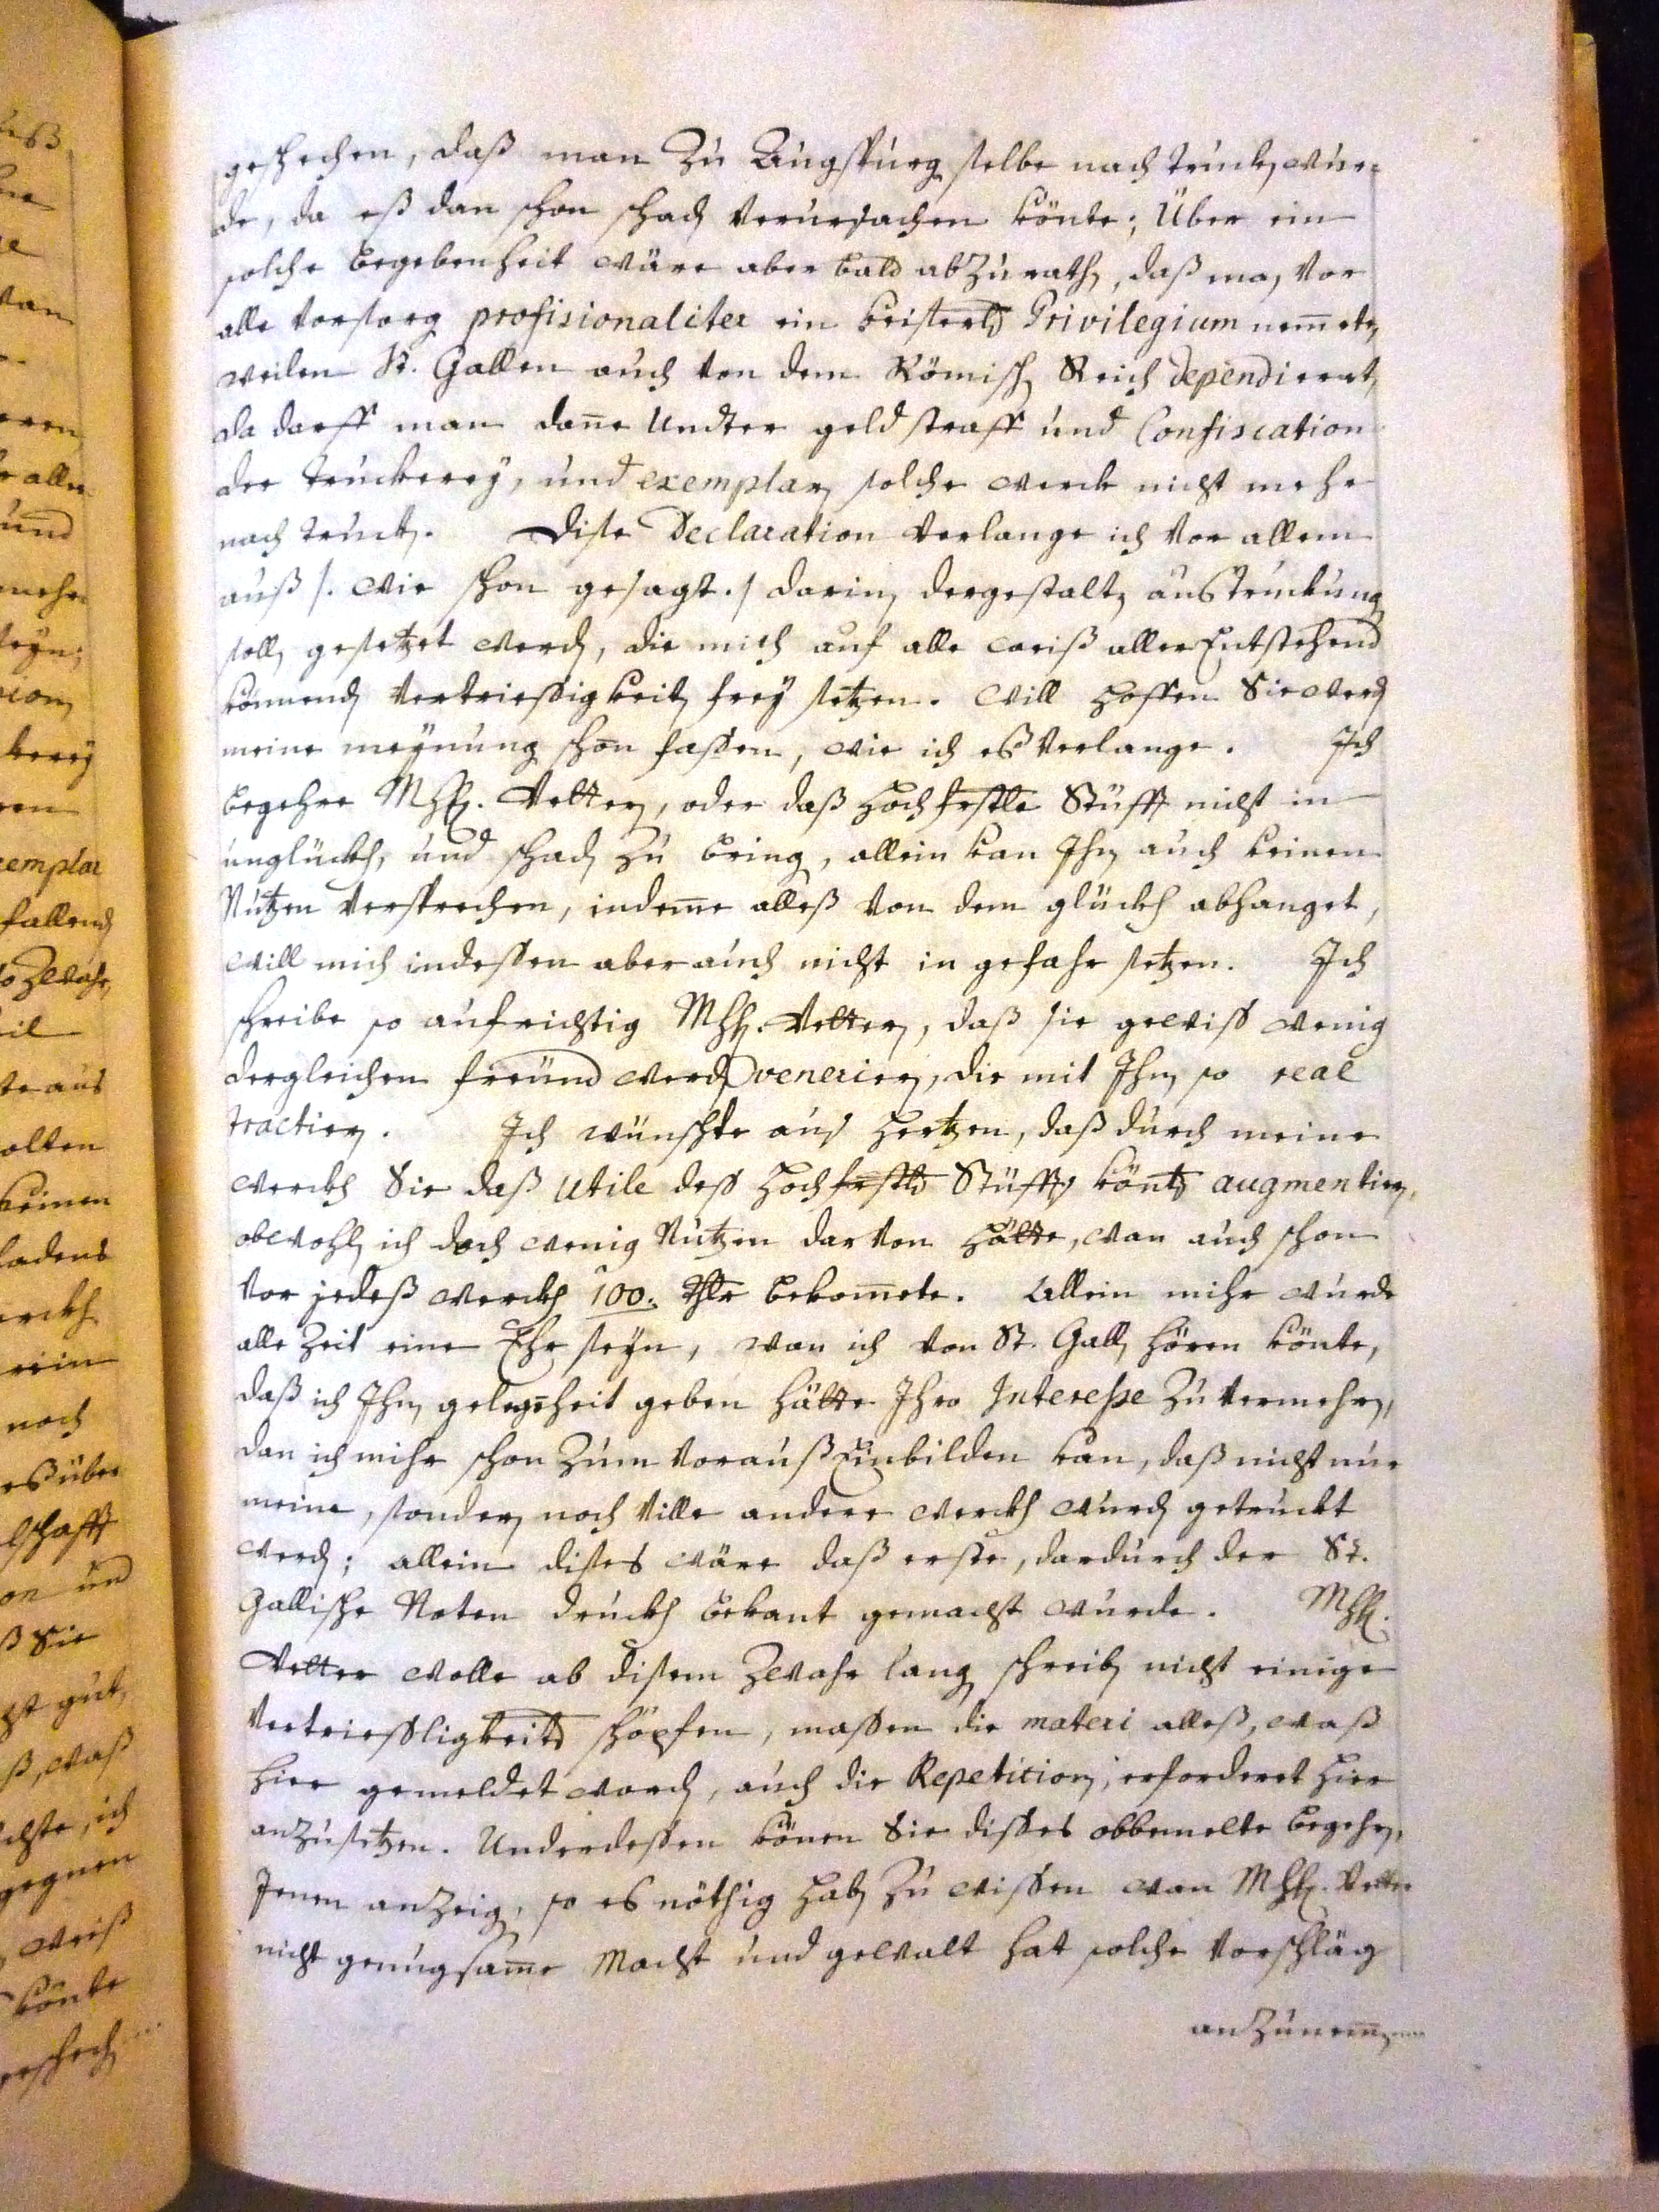 geschechen, daß man Zu Augspurg selbe nach truckhen wur=
de, da eß dan schon schaden verursachen könte; Über ein
solche begebenheit wäre aber bald abZurathen, daß man vor
alle vorsorg profisionaliter ein keiserliches Privilegium nem̄ete,
weilen St. Gallen auch von dem Römischen Reich dependieret,
da darff man dan̄e undter geld straff und Confiscation
der truckerey, und exemplaren solche werck nicht mehr
nach trucken. Dise Declaration verlange ich vor allem
auß /. wie schon gesagt ./ darin dergestalten austruckungen
sollen gesetzet werden, die mich auf alle weiß aller Entstehend
könnenden vertriessigkeiten frey setzen. Will hoffen Sie werden
meine meynung schon fassen, wie ich eß verlange. Ich
begehre MhH. Vetteren, oder daß hochfrstle Stüfft nicht in
unglückh, und schaden zu bringen, allein kan Ihnen auch keinen
Nutzen versprechen, indeme alleß von dem glückh abhanget,
will mich indessen aber auch nicht in gefahr setzen. Ich
schreibe so aufrichtig MhH. Vetteren, daß sie gewiss wenig
dergleichen freünd werden venerieren, die mit Ihnen so real
tractieren. Ich wünschte aus hertzen, daß durch meine
werckh Sie daß utile dess hochfrstls Stüffts könten augmentieren,
obwohlen ich doch wenig Nutzen darvon hätte, wan auch schon
vor jedeß werckh 100. thlr bekom̄ete. Allein mihr wurde
alle Zeit eine Ehr seyn, wan ich von St. Gallen hören könte,
daß ich Ihnen gelegenheit geben hätte Ihro Interesse zu vermehren,
dan ich mihr schon Zum vorauß Einbilden kan, daß nicht nur
meine, sonderen noch ville andere werckh wurden getruckt
werden; allein dises wäre daß erste, dardurch der St.
Gallische Noten druckh bekant gemacht wurde. MhH.
Vetter wolle ab disem Zwahr langen schreiben nicht einige
vertriessligkeiten schöpfen, massen die materi alleß, waß
hier gemeldet worden, auch die Repetition, erforderet hier
anZusetzen. Underdessen könen Sie disses obbemelte begehren
Jenen anZeigen, so es nöthig haben zu wissen wan MhH. Vetter
nicht genugsam̄e Macht und gewalt hat solche vorschläg
anZunem̄en